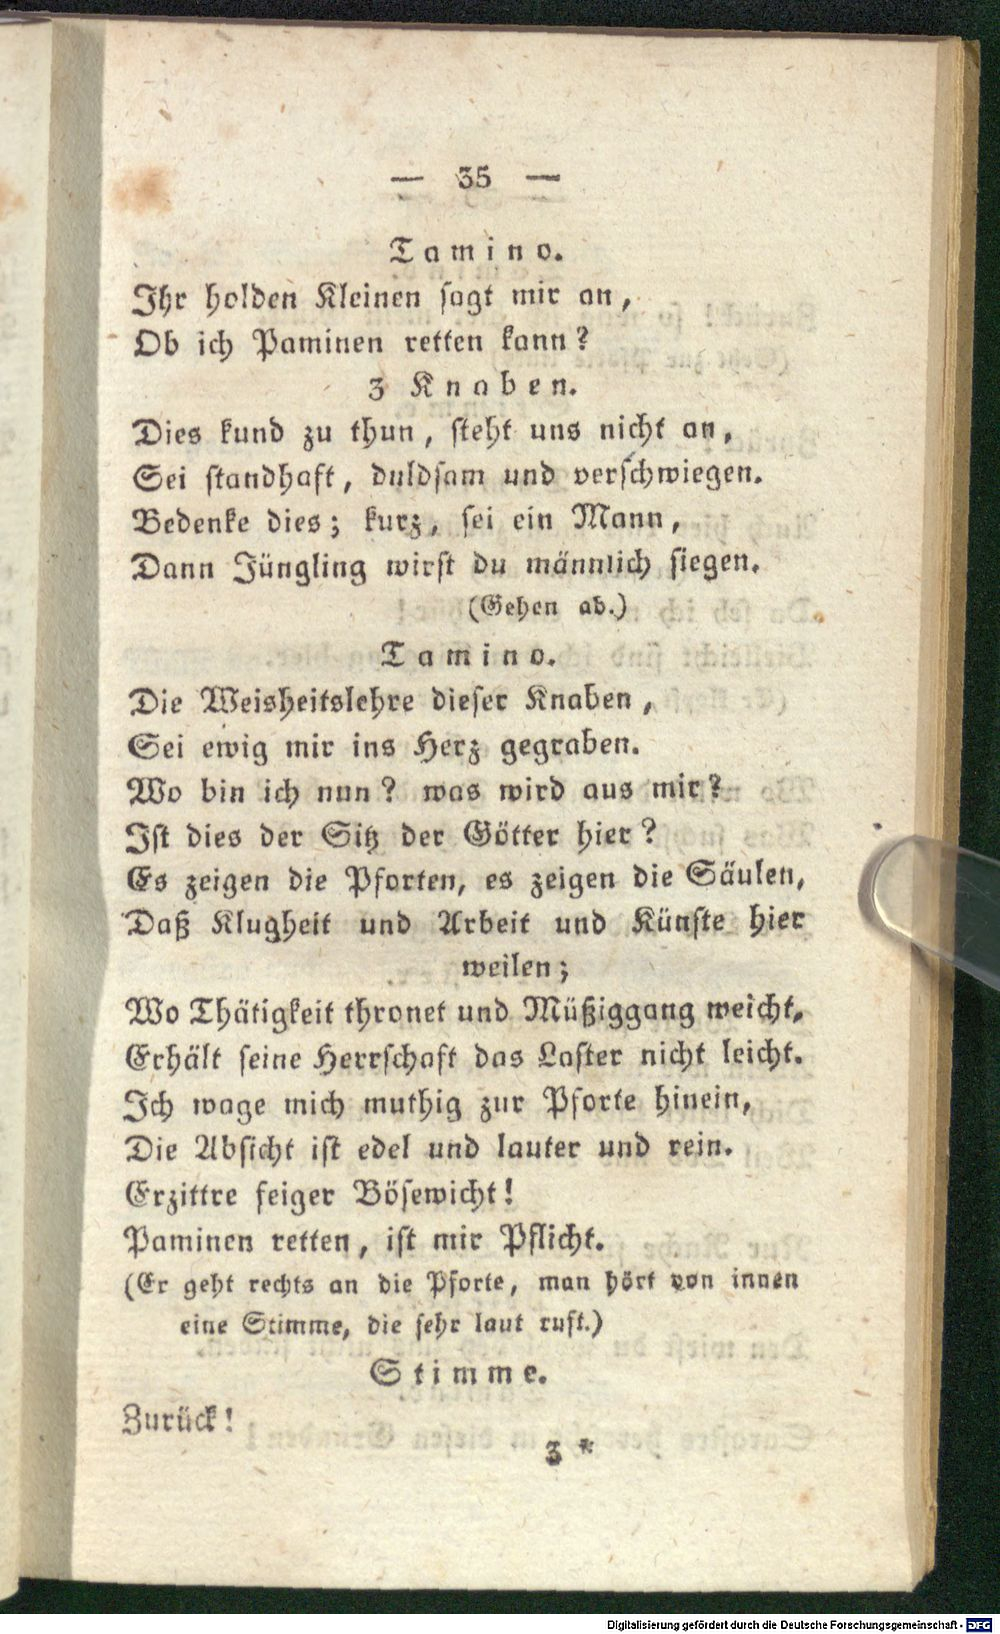 — 35 —
Tamino.
Ihr holden Kleinen sagt mir an,
Ob ich Paminen retten kann?
3 Knaben.
Dies kund zu thun, steht uns nicht an,
Sei standhaft, duldsam und verschwiegen.
Bedenke dies; kurz, sei ein Mann,
Dann Jüngling wirst du männlich siegen.
(Gehen ab.)
Tamino.
Die Weisheitslehre dieser Knaben,
Sei ewig mir ins Herz gegraben.
Wo bin ich nun? was wird aus mir?
Ist dies der Sitz der Götter hier?
Es zeigen die Pforten, es zeigen die Säulen,
Daß Klugheit und Arbeit und Künste hier
weilen;
Wo Thätigkeit thronet und Müßiggang weicht,
Erhält seine Herrschaft das Laster nicht leicht.
Ich wage mich muthig zur Pforte hinein,
Die Absicht ist edel und lauter und rein.
Erzittre feiger Bösewicht!
Paminen retten, ist mir Pflicht.
(Er geht rechts an die Pforte, man hört von innen
eine Stimme, die sehr laut ruft.)
Stimme.
Zurück!
3 *
Digitalisierung gefördert durch die Deutsche Forschungsgemeinschaft - DFG